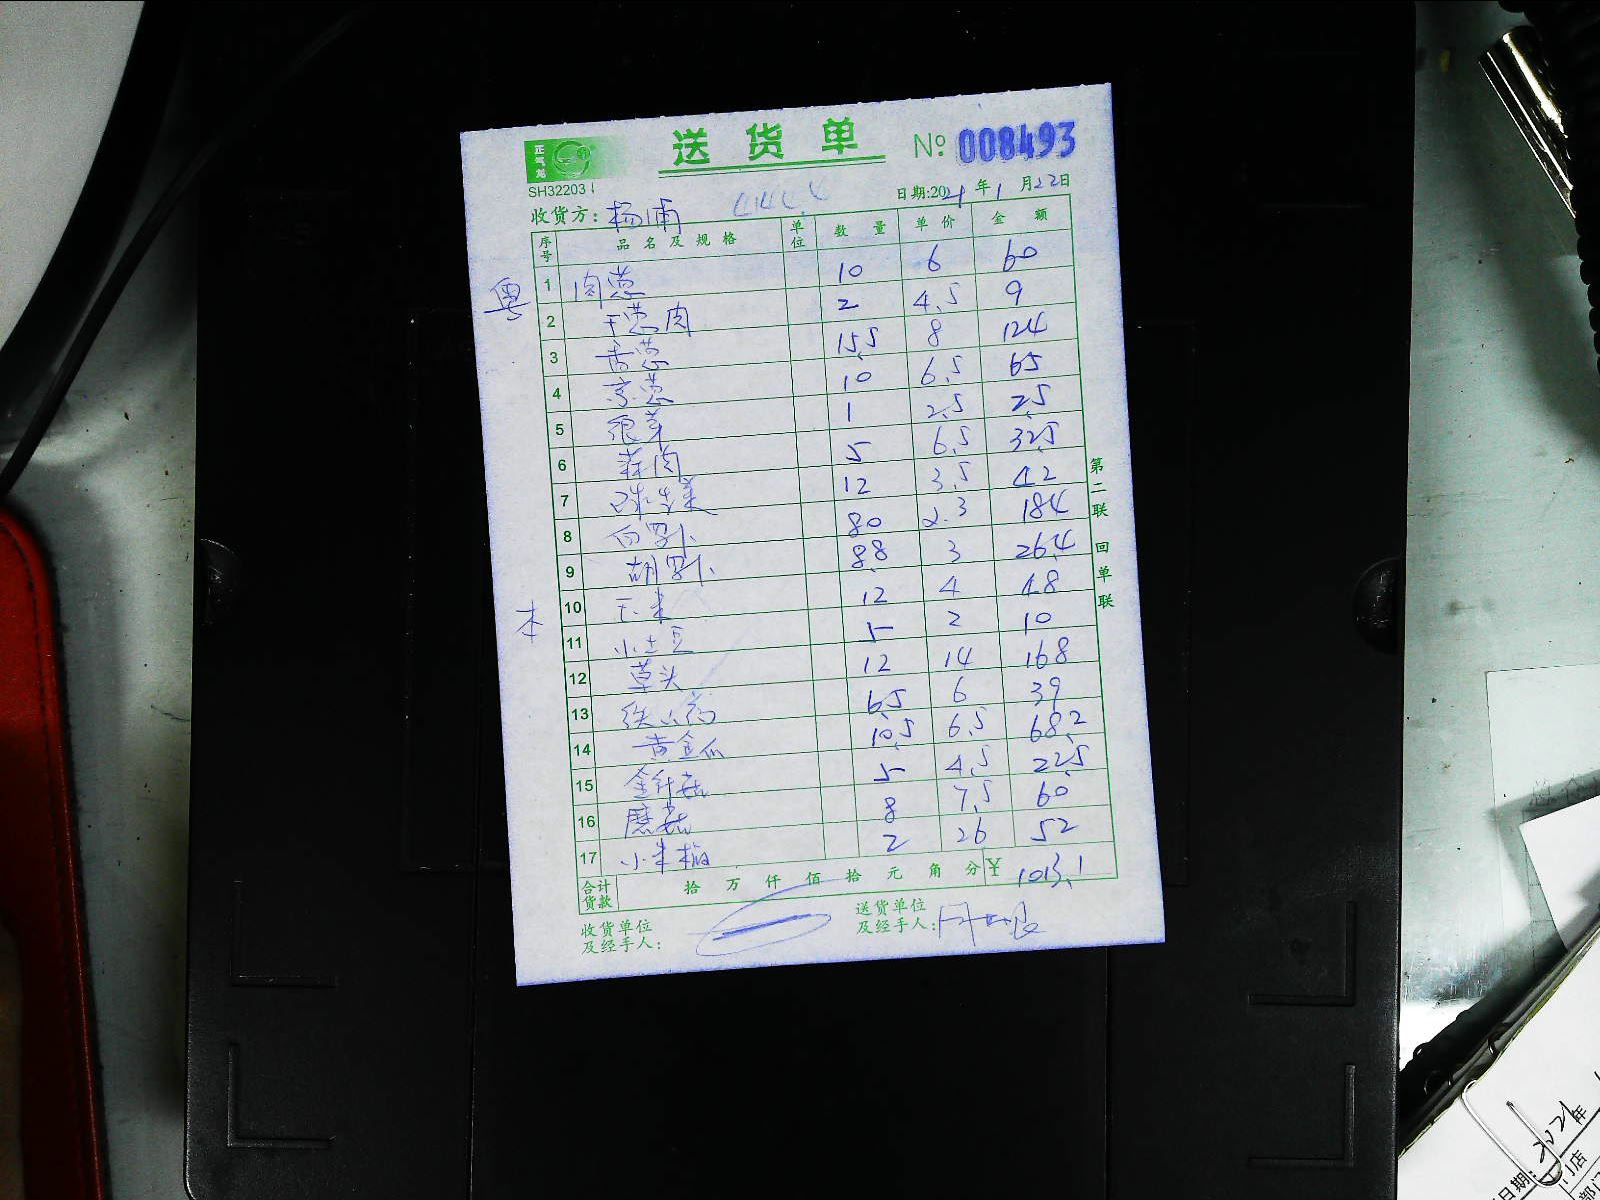 正气龙
送货单 № 008493
SH32203
日期:2021年1月22日
收货方:杨浦
序号 品名及规格 单位 数量 单价 金额
粤
1 肉葱 10 6 60
2 干葱肉 2 4.5 9
3 香葱 15.5 8 124
4 京葱 10 6.5 65
5 银芽 1 2.5 2.5
6 蒜肉 5 6.5 32.5
7 球生菜 12 3.5 42
8 白罗卜 80 2.3 184
9 胡罗卜 8.8 3 26.4
本
10 玉米 12 4 48
11 小土豆 5 2 10
12 草头 12 14 168
13 铁山药 6.5 6 39
14 黄金瓜 10.5 6.5 68.2
15 金针菇 5 4.5 22.5
16 蘑菇 8 7.5 60
17 小米椒 2 26 52
合计货款 拾 万 仟 佰 拾 元 角 分 ¥ 1013.1
收货单位及经手人:
送货单位及经手人:
第二联 回单联
日期: 2021年
门店
部门